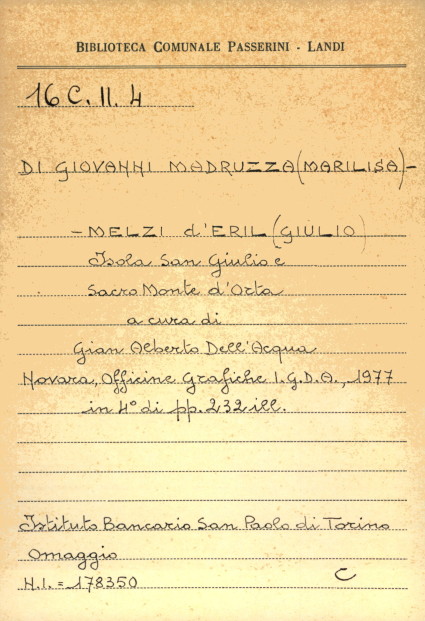 BIBLIOTECA COMUNALE PASSERINI - LANDI
16 C. II. 4
DI GIOVANNI MADRUZZA (MARILISA) -
- MELZI d'ERIL (GIULIO)
Isola San Giulio e
Sacro Monte d'Orta
a cura di
Gian Alberto Dell'Acqua
Novara, Officine Grafiche I.G.D.A., 1977
in 4° di pp. 232 ill.
Istituto Bancario San Paolo di Torino
Omaggio
N.I. = 178350 C